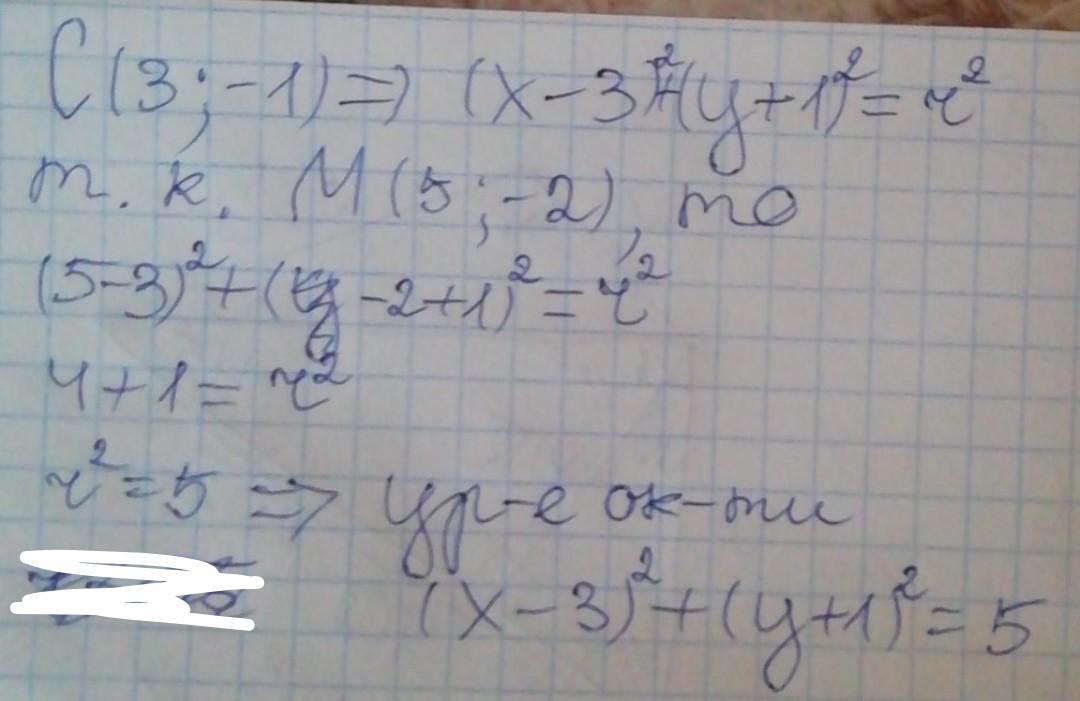 C(3;-1)=> (x-3)²+(y+1)²=r²
т. к. M(5;-2), то
(5-3)²+(-2+1)²=r²
4+1=r²
r²=5 => ур-е ок-ти
(x-3)²+(y+1)²=5